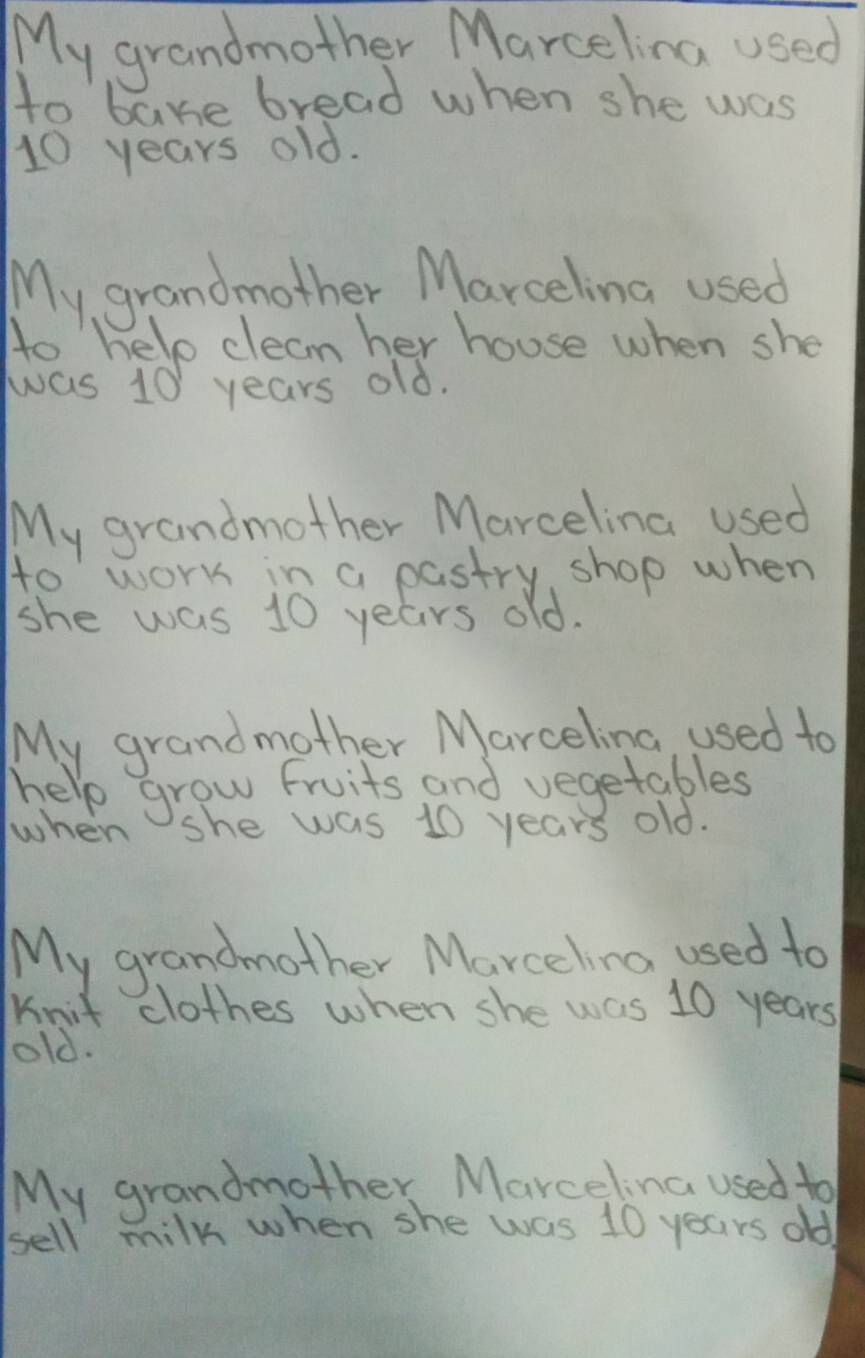 My grandmother Marcelina used
to bake bread when she was
10 years old.
My grandmother Marcelina used
to help clean her house when she
was 10 years old.
My grandmother Marcelina used
to work in a pastry shop when
she was 10 years old.
My grandmother Marcelina used to
help grow fruits and vegetables
when she was 10 years old.
My grandmother Marcelina used to
Knit clothes when she was 10 years
old.
My grandmother Marcelina used to
sell milk when she was 10 years old.